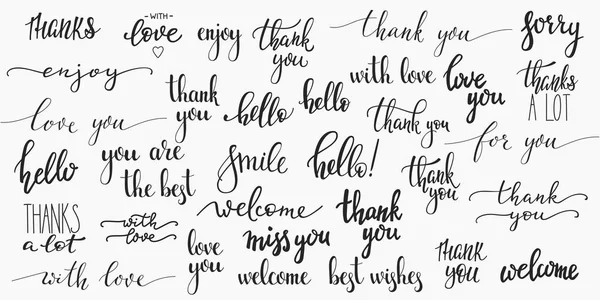 thanks
-WITH-
love
enjoy
thank
you
thank you
sorry
enjoy
with love
love
you
thanks
A LOT
thank
you
hello
hello
love you
thank you
for you
hello
you are
the best
smile
hello!
thank
you
thank
you
THANKS
a lot
with
love
welcome
thank
you
miss you
love
you
thank
you
welcome
with love
welcome
best wishes